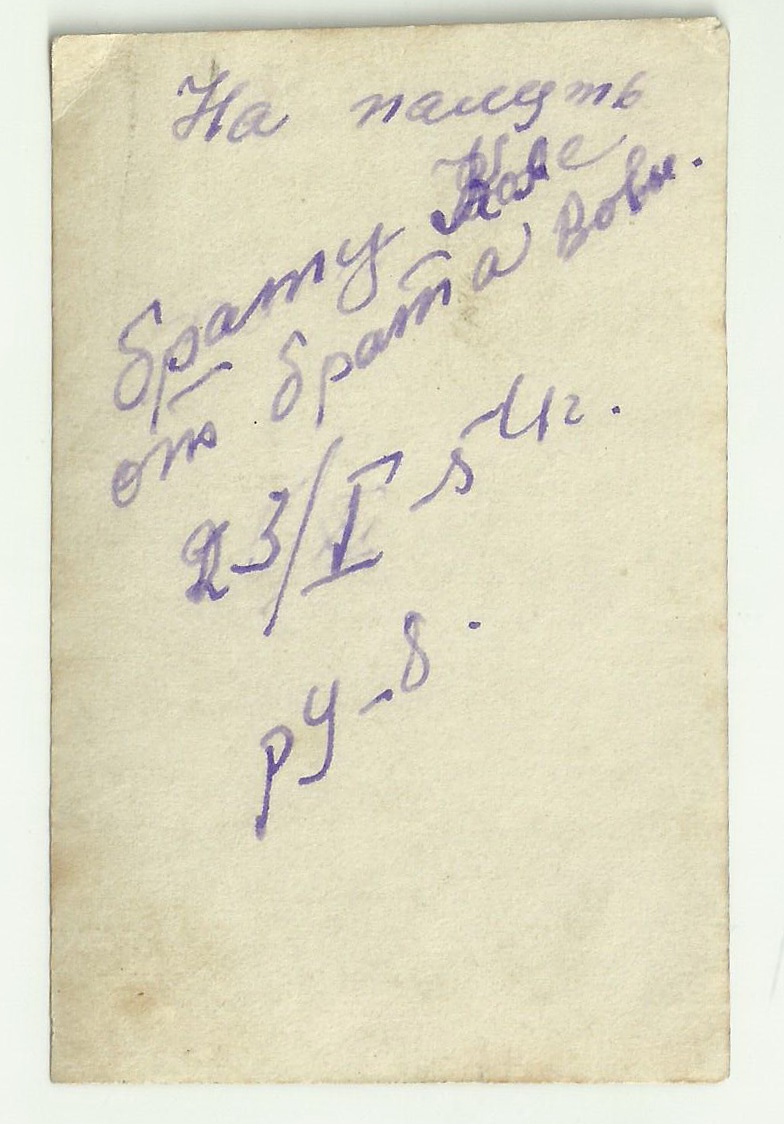 На память
брату Коле
от брата Вовы.
23/I 54г.
РУ-8.